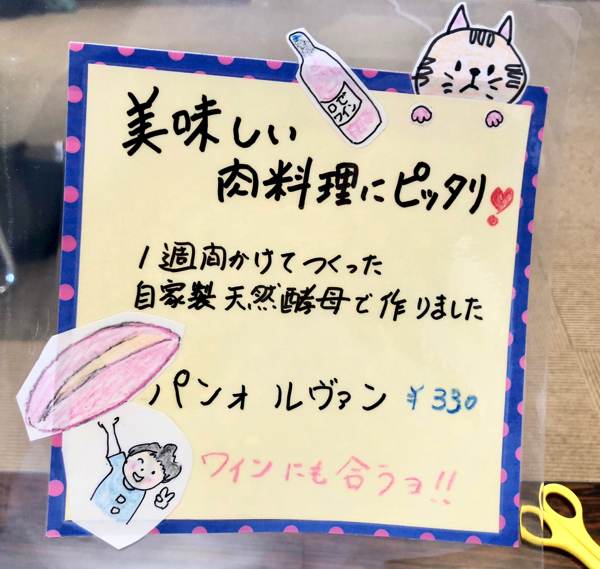 ロゼ
ワイン
美味しい
肉料理にピッタリ❤!
1週間かけてつくった
自家製天然酵母で作りました
パンオルヴァン ¥330
ワインにも合うヨ!!